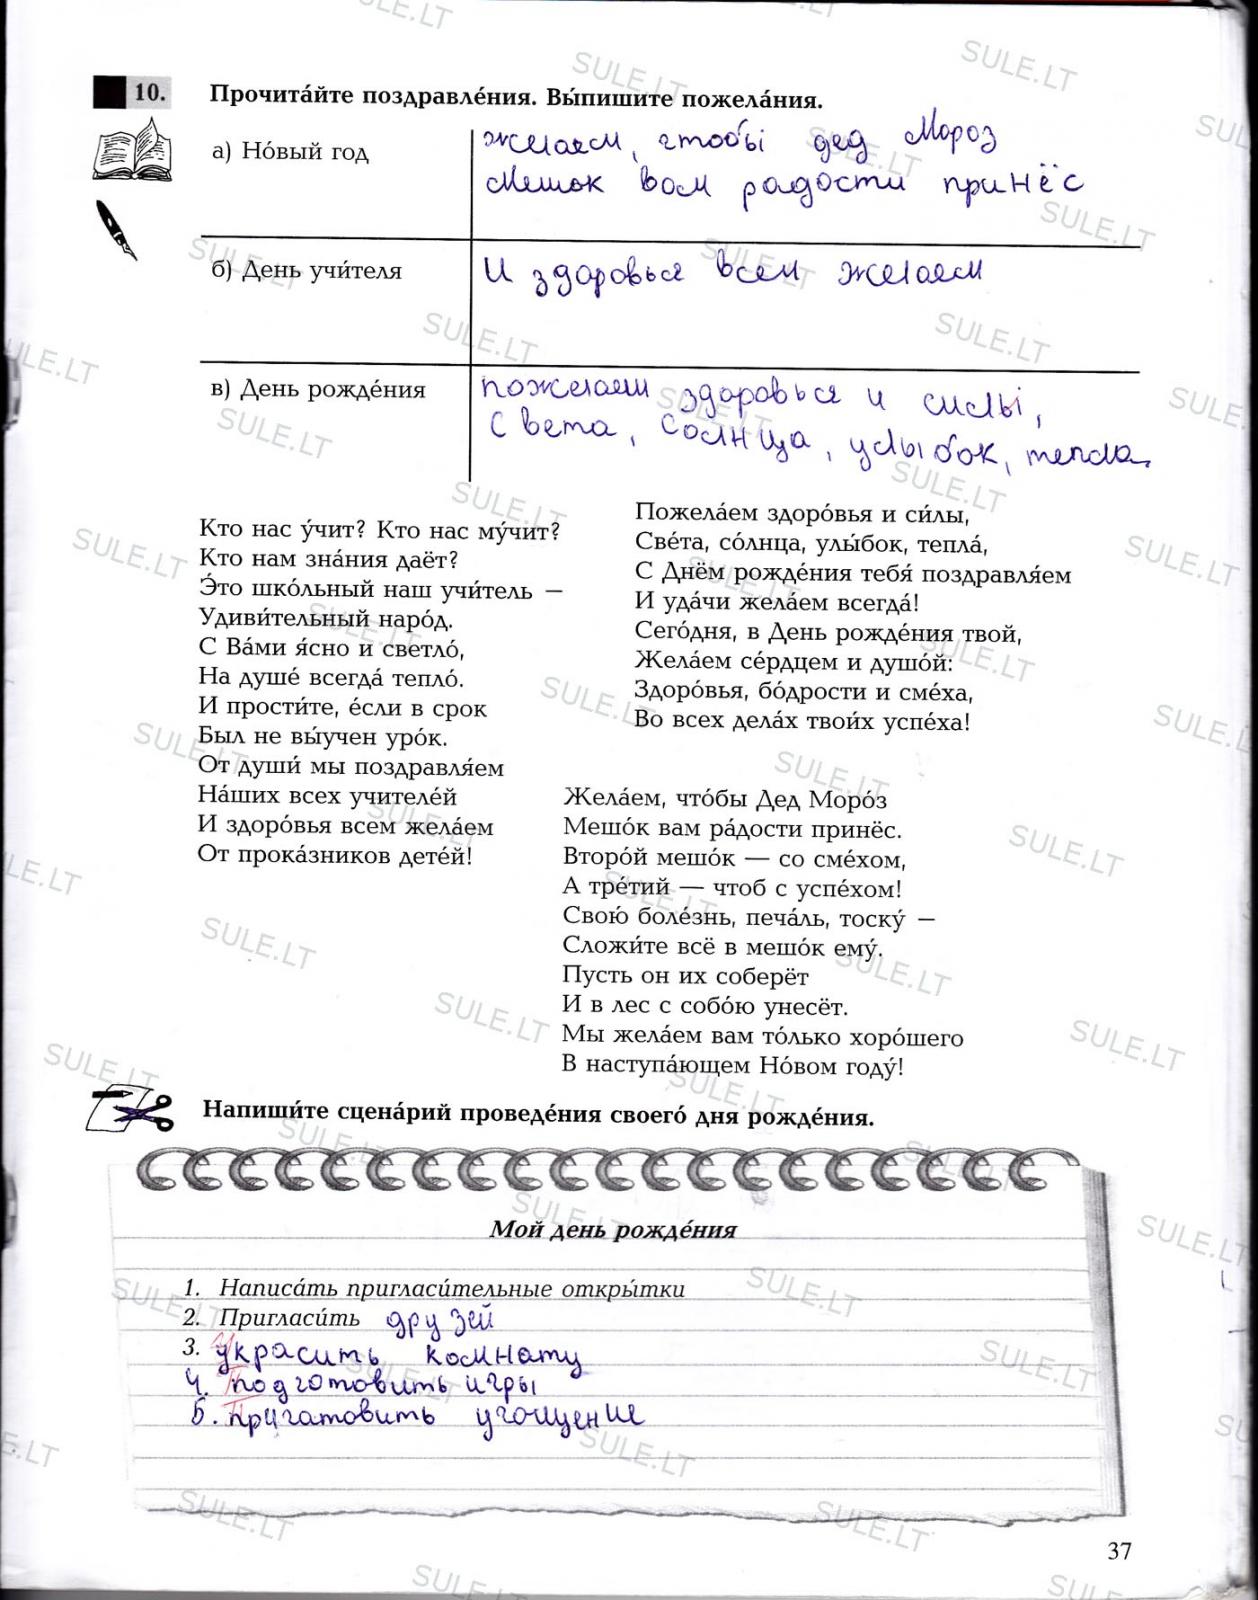 10. Прочита́йте поздравле́ния. Вы́пишите пожела́ния.
а) Но́вый год
желаем, чтобы дед Мороз
мешок вам радости принёс
б) День учи́теля
И здоровья всем желаем
в) День рожде́ния
пожелаем здоровья и силы,
Света, солнца, улыбок, тепла.
Кто нас у́чит? Кто нас му́чит?
Кто нам зна́ния даёт?
Э́то шко́льный наш учи́тель —
Удиви́тельный наро́д.
С Ва́ми я́сно и светло́,
На душе́ всегда́ тепло́.
И прости́те, е́сли в срок
Был не вы́учен уро́к.
От души́ мы поздравля́ем
На́ших всех учителе́й
И здоро́вья всем жела́ем
От прока́зников дете́й!
Пожела́ем здоро́вья и си́лы,
Све́та, со́лнца, улы́бок, тепла́,
С Днём рожде́ния тебя́ поздравля́ем
И уда́чи жела́ем всегда́!
Сего́дня, в День рожде́ния твой,
Жела́ем се́рдцем и душо́й:
Здоро́вья, бо́дрости и сме́ха,
Во всех дела́х твои́х успе́ха!
Жела́ем, что́бы Дед Моро́з
Мешо́к вам ра́дости принёс.
Второ́й мешо́к — со сме́хом,
А тре́тий — чтоб с успе́хом!
Свою́ боле́знь, печа́ль, тоску́ —
Сложи́те всё в мешо́к ему́.
Пусть он их соберёт
И в лес с собо́ю унесёт.
Мы жела́ем вам то́лько хоро́шего
В наступа́ющем Но́вом году́!
Напиши́те сцена́рий проведе́ния своего́ дня рожде́ния.
Мой день рожде́ния
1. Написа́ть пригласи́тельные откры́тки
2. Пригласи́ть друзей
3. украсить комнату
4. Подготовить игры
5. Пригатовить угощение
37
SULE.LT